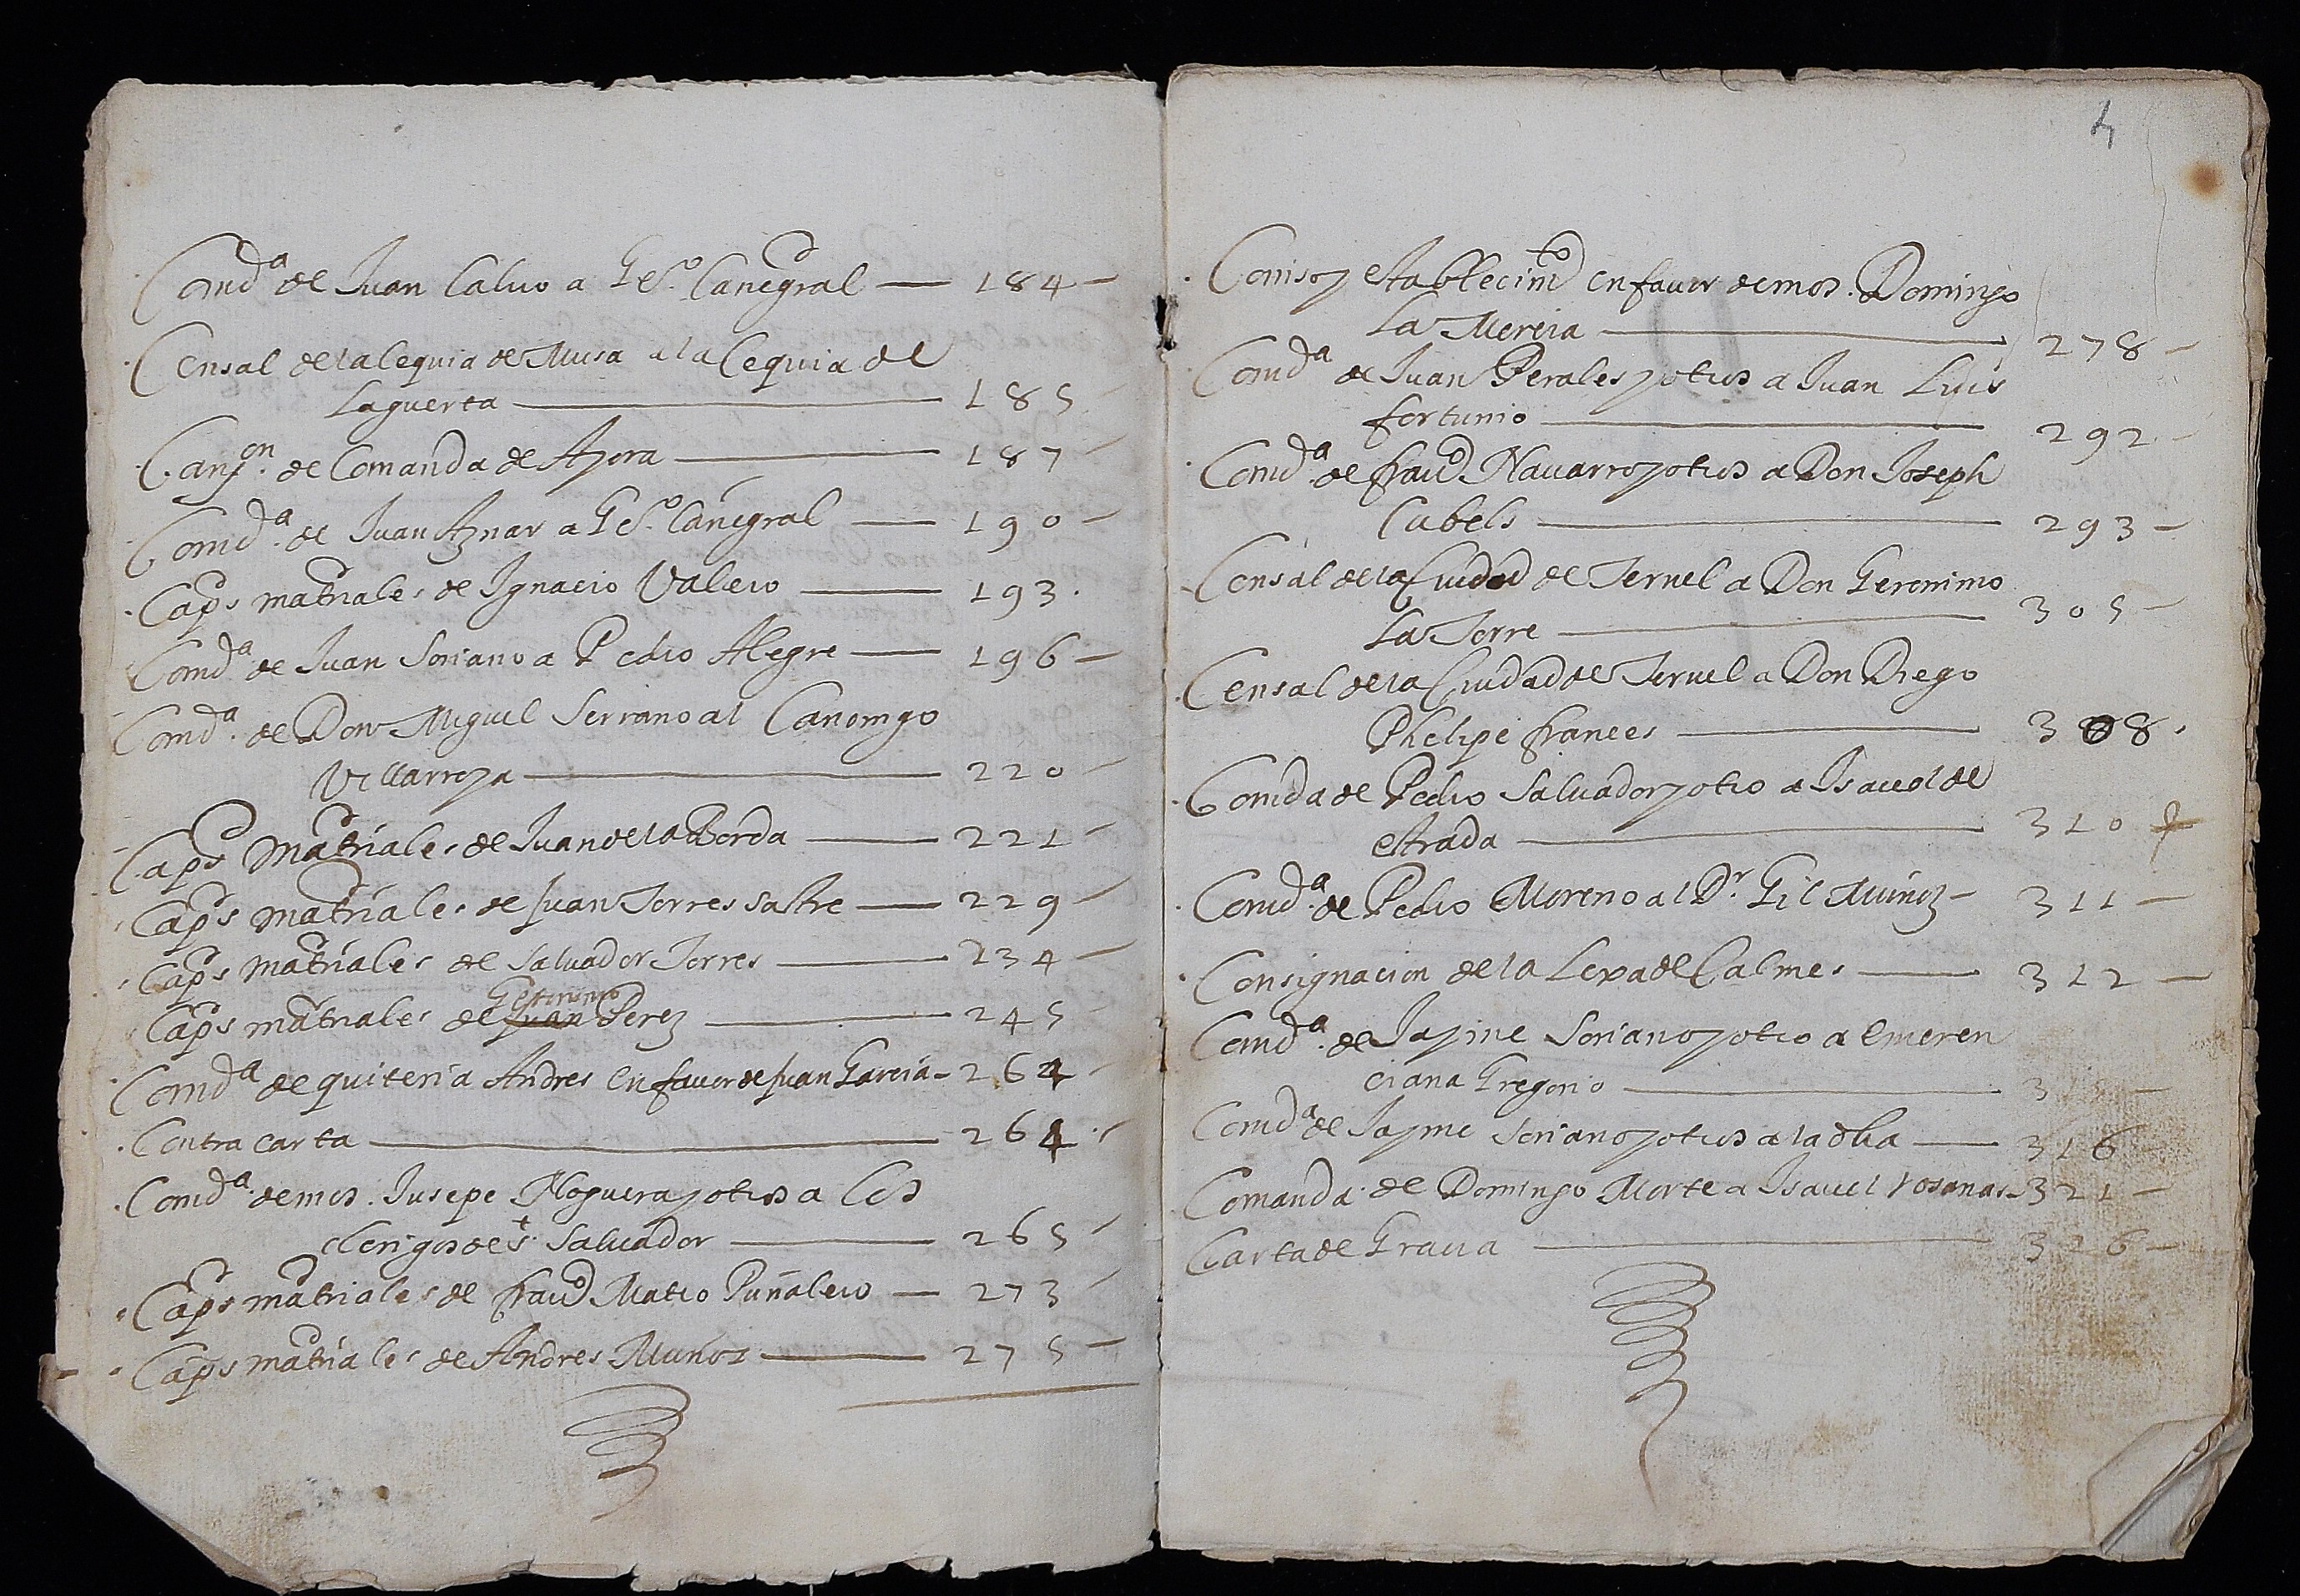 Comda de Juan Calvo a Geo. Canegral — 184 —
Censal de la Cequia de Musa a la Cequia de
Laguerta — 185
Canon. de Comanda de Azora — 187 —
Comda. de Juan Aznar a Geo. Canegral — 190 —
Caps matriales de Ignacio Valero — 193.
Comda de Juan Soriano a Pedro Alegre — 196 —
Comda. de Don Miguel Serrano al Canonigo
Villarroya — 220 —
Caps matriales de Juan de la Borda — 221 —
Caps matriales de Juan Torres sastre — 229 —
Caps matriales de Salvador Torres — 234 —
Geronimo
Caps matriales de Juan Perez — 245 —
Comda de quiteria Andres en favor de Juan Garcia — 264 —
Contra carta — 264.
Comda. de mos. Jusepe Noguera y otros a los
clerigos de St. Salvador — 265 —
Caps matriales de franco Mateo Puñalero — 273 —
Caps matriales de Andres Muñoz — 275 —
4
Comiso y establecimto en favor de mos. Domingo
La Mercia — 278 —
Comda de Juan Perales y otros a Juan Luis
fortunio — 292 —
Comda. de franco Navarro y otros a Don Joseph
Cubels — 293 —
Censal de la Ciudad de Teruel a Don Geronimo
La Torre — 305 —
Censal de la Ciudad de Teruel a Don Diego
Phelipe frances — 308.
Comda de Pedro Salvador y otro a Isavel de
estrada — 310
Comda. de Pedro Moreno al Dr. Gil Muñoz — 311 —
Consignacion de la Leva de Calmes — 312 —
Comda. de Jayme Soriano y otro a emeren
ciana Gregorio — 3
Comda de Jayme Soriano y otros a la dha — 316
Comanda de Domingo Morte a Isavel rosanas — 321 —
Carta de Gracia — 326 —